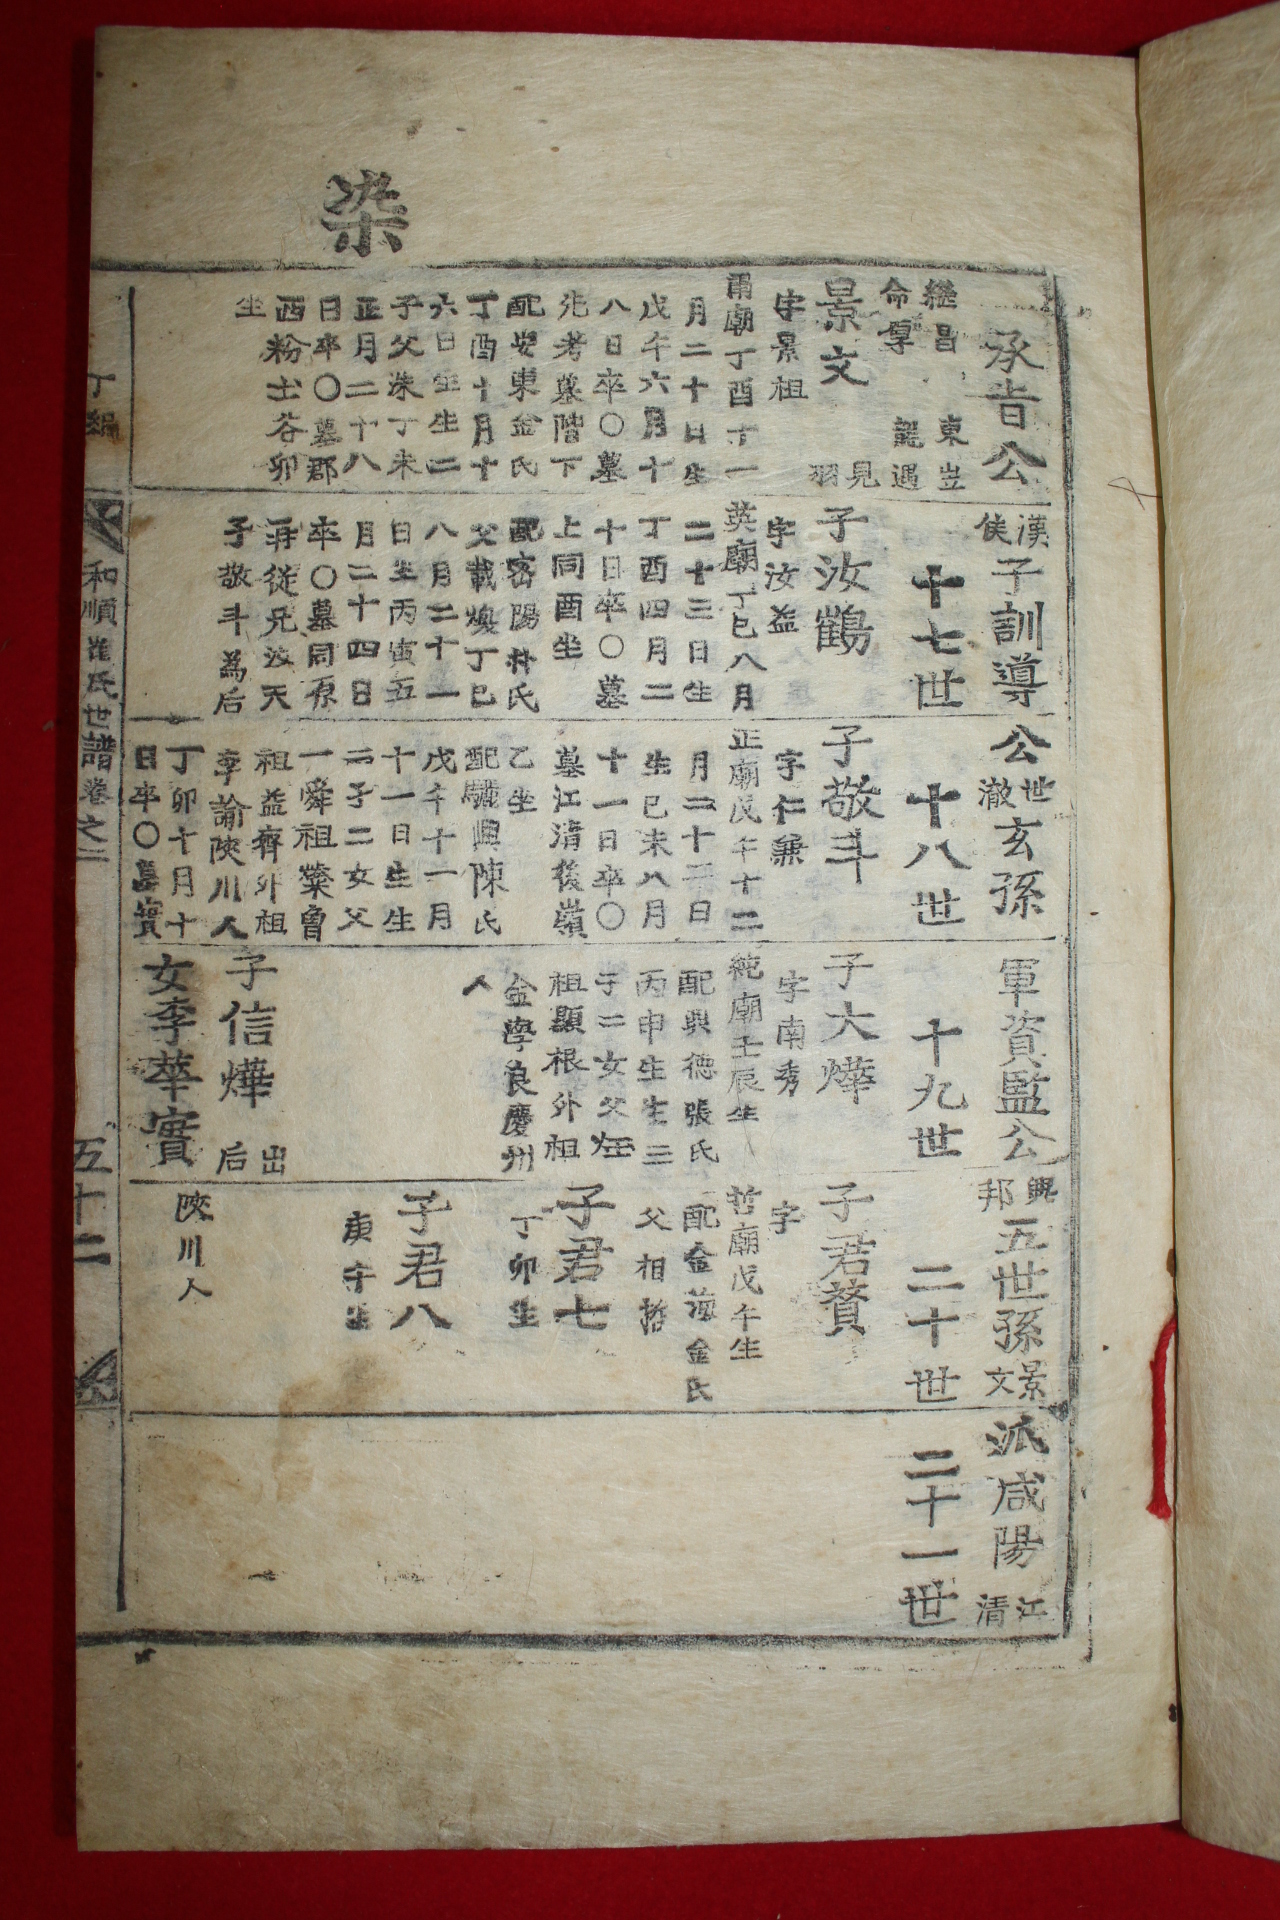 染
承旨公
漢侯
子訓導
公
世澈
玄孫
軍資監公
興邦
五世孫
景文
派咸陽
江清
繼昌
命厚
東岦
龍遇
十七世
十八世
十九世
二十世
二十一世
景文
見羽
字景祖
肅廟丁酉丁一
月二十日生
戊午六月十
八日卒〇墓
先考墓階下
配安東金氏
丁酉十月十
六日生生二
子父洙丁未
正月二十八
日卒〇墓郡
西粉土谷卯
坐
子汝鶴
字汝益
英廟丁巳八月
二十三日生
丁酉四月二
十日卒〇墓
上同酉坐
配密陽朴氏
父載煥丁巳
八月二十一
日生丙寅五
月二十四日
卒〇墓同原
再從兄汝天
子敬斗為后
子敬斗
字仁兼
正廟戊午十二
月二十二日
生己未八月
十一日卒〇
墓江清後嶺
乙坐
配驪興陳氏
戊午十一月
十一日生生
二子二女父
一舜祖燦曾
祖益齊外祖
李諭陜川人
丁卯十月十
日卒〇墓實
子大燁
字南秀
純廟壬辰生
配興德張氏
丙申生生三
子二女父
祖顯根外祖
金學良慶州
人
子信燁
出后
女李華實
陜川人
子君贊
字
哲廟戊午生
配金海金氏
父相哲
子君七
丁卯生
子君八
庚午生
丁編
和順崔氏世譜卷之二
五十二